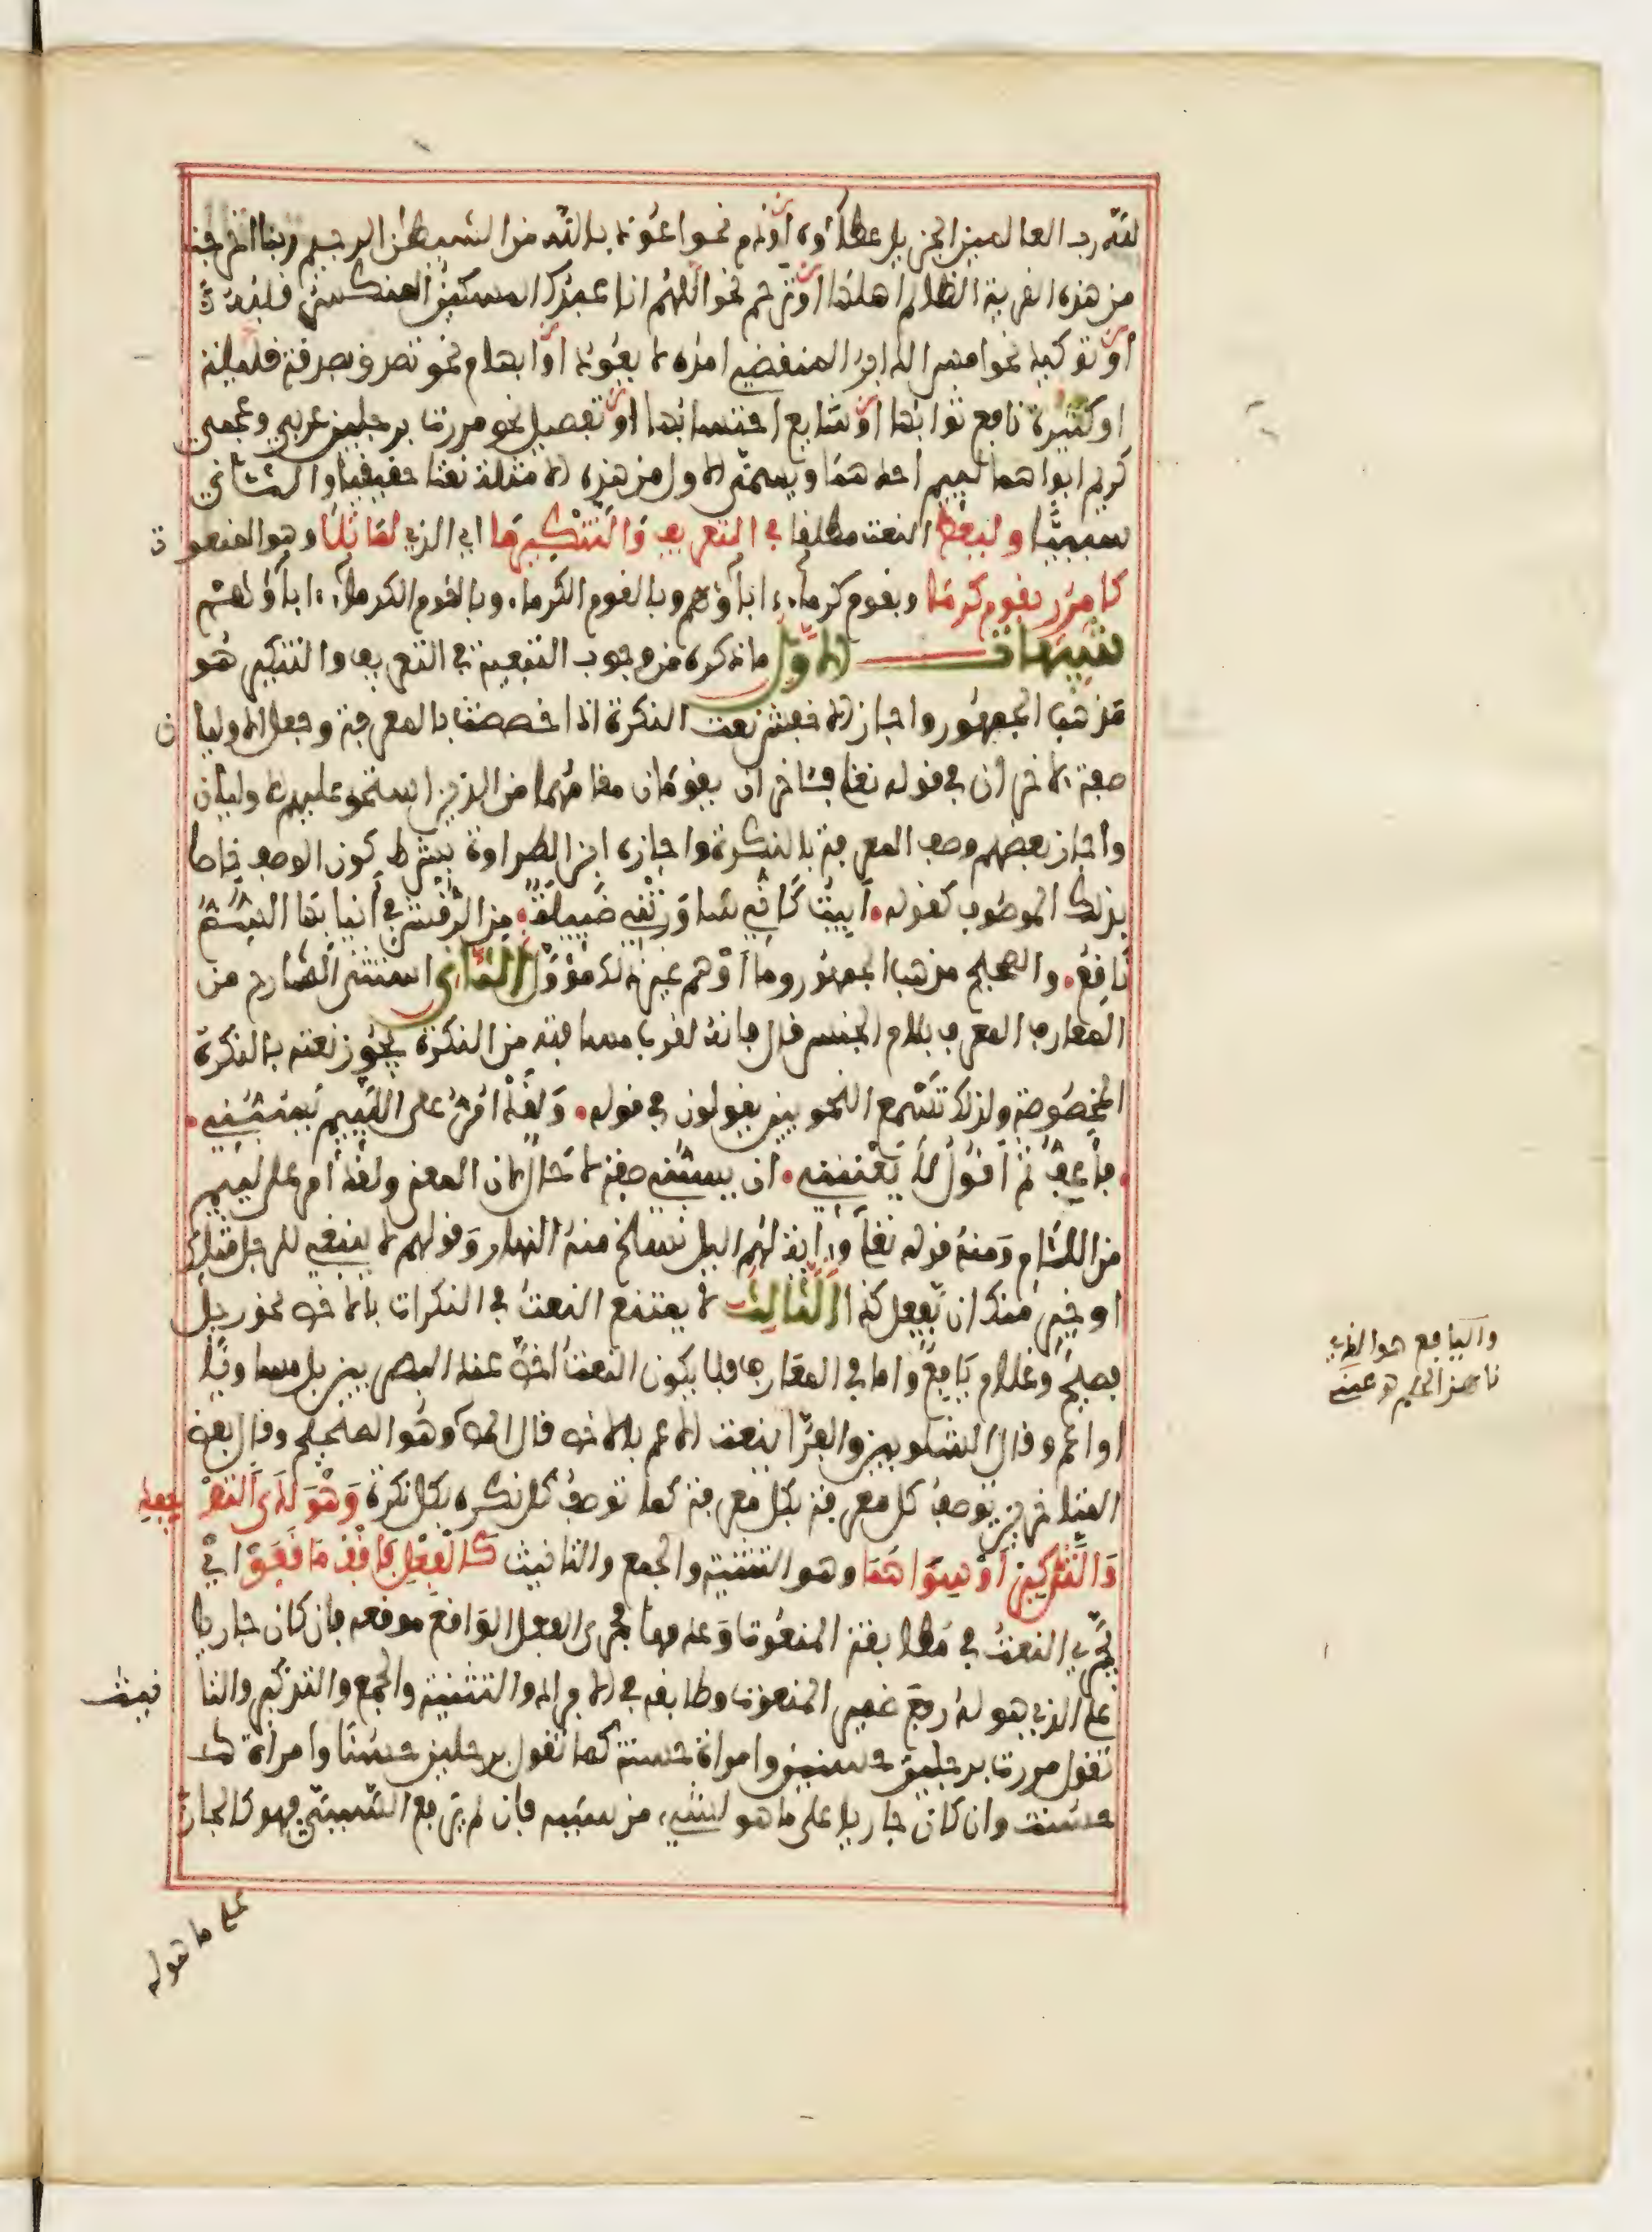 لله رب العالمين الجزيل عطاؤه أو ذم نحو اعوذ بالله من الشيطن الرجيم ربنا اخرجنا
من هذه القرية الظالم اهلها او ترحم نحو اللهم انا عبدك المسكين المنكسر قلبه
او توكيد نحو امس الدابر المنقضي امده لا يعود او ابهام نحو تصدق بصدقة قليلة
او كثيرة نافع ثوابها او شايع احتسابها او تفصيل نحو مررت برجلين عربي وعجمي
كريم ابواهما لئيم احدهما ويسمى الاول من هذه الامثلة نعتا حقيقيا والثاني
سببيا وليعط النعت مطلقا في التعريف والتنكير ما اي الذي لما تلا وهو المنعوت
كامرر بقوم كرما وبقوم كرماء اباؤهم وبالقوم الكرماء وبالقوم الكرماء اباؤهم
تنبيهات الاول ما ذكره من وجوب التبعية في التعريف والتنكير هو
مذهب الجمهور واجاز الاخفش نعت النكرة اذا خصصت بالمعرفة وجعل الاوليان
صفة لآخران في قوله تعلى فآخران يقومان مقامهما من الذين استحق عليهم الاوليان
واجاز بعضهم وصف المعرفة بالنكرة واجازه ابن الطراوة بشرط كون الوصف خاصا
بذلك الموصوف كقوله أبيت كأني ساورتني ضئيلة من الرقش في أنيابها السم
ناقع والصحيح مذهب الجمهور وما أوهم غير ذلك مؤول الثاني استثنى الشارح من
المعارف المعرف بلام الجنس قال فانه لقرب مسافته من النكرة يجوز نعته بالنكرة
المخصوصة ولذلك تسمع النحويين يقولون في قوله ولقد امر على اللئيم يسبني
فأعف ثم اقول لا يعنيني ان يسبني صفة لا حال لان المعنى ولقد امر على لئيم
من اللئام ومنه قوله تعلى وءاية لهم اليل نسلخ منه النهار وقولهم لا ينبغي للرجل مثلك
او خير منك ان يفعل كذا الثالث لا يمتنع النعت في النكرات بالاخص نحو رجل
فصيح وغلام يافع واما في المعارف فلا يكون النعت اخص عند البصريين بل مساويا
او اعم وقال الشلوبين والفراء ينعت الاعم بالاخص قال المص وهو الصحيح وقال بعض
المتاخرين توصف كل معرفة بكل معرفة كما توصف كل نكره بكل نكرة وهو لدى التوحيد
والتذكير أو سواهما وهو التثنية والجمع والتانيث كالفعل فاقف ما قفوا اي
يجري النعت في مطابقة المنعوت وعدمها مجرى الفعل الواقع موقعه فان كان جاريا
على الذي هو له رفع ضمير المنعوت وطابقه في الافراد والتثنية والجمع والتذكير والتانيث
تقول مررت برجلين حسنين وامراة حسنة كما تقول برجلين حسنا وامراة
حسنت وان كان جاريا على ما هو لشيء من سببه فان لم يرفع السببي فهو كالجاري
على ما هو له
واليافع هو الذي
ناهز الحلم